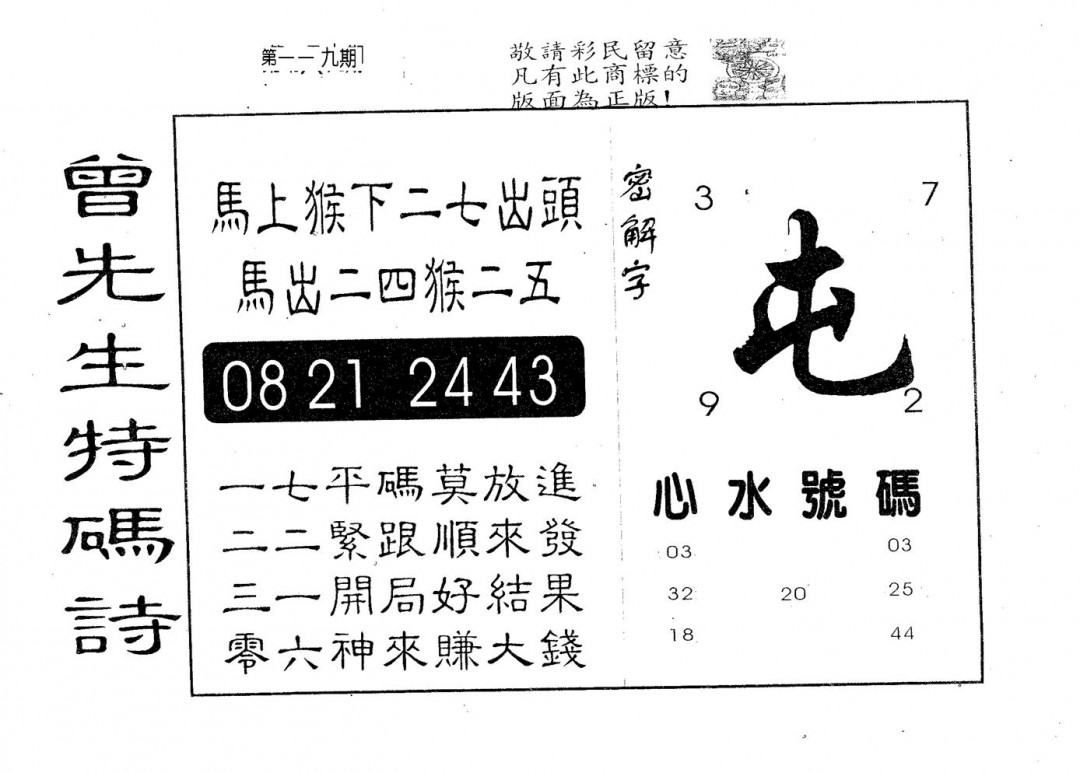 第一一九期
敬請彩民留意
凡有此商標的
版面為正版！
曾先生特碼詩
馬上猴下二七出頭
馬出二四猴二五
08 21 24 43
一七平碼莫放進
二二緊跟順來發
三一開局好結果
零六神來賺大錢
密解字
3 7
屯
9 2
心水號碼
03 03
32 20 25
18 44